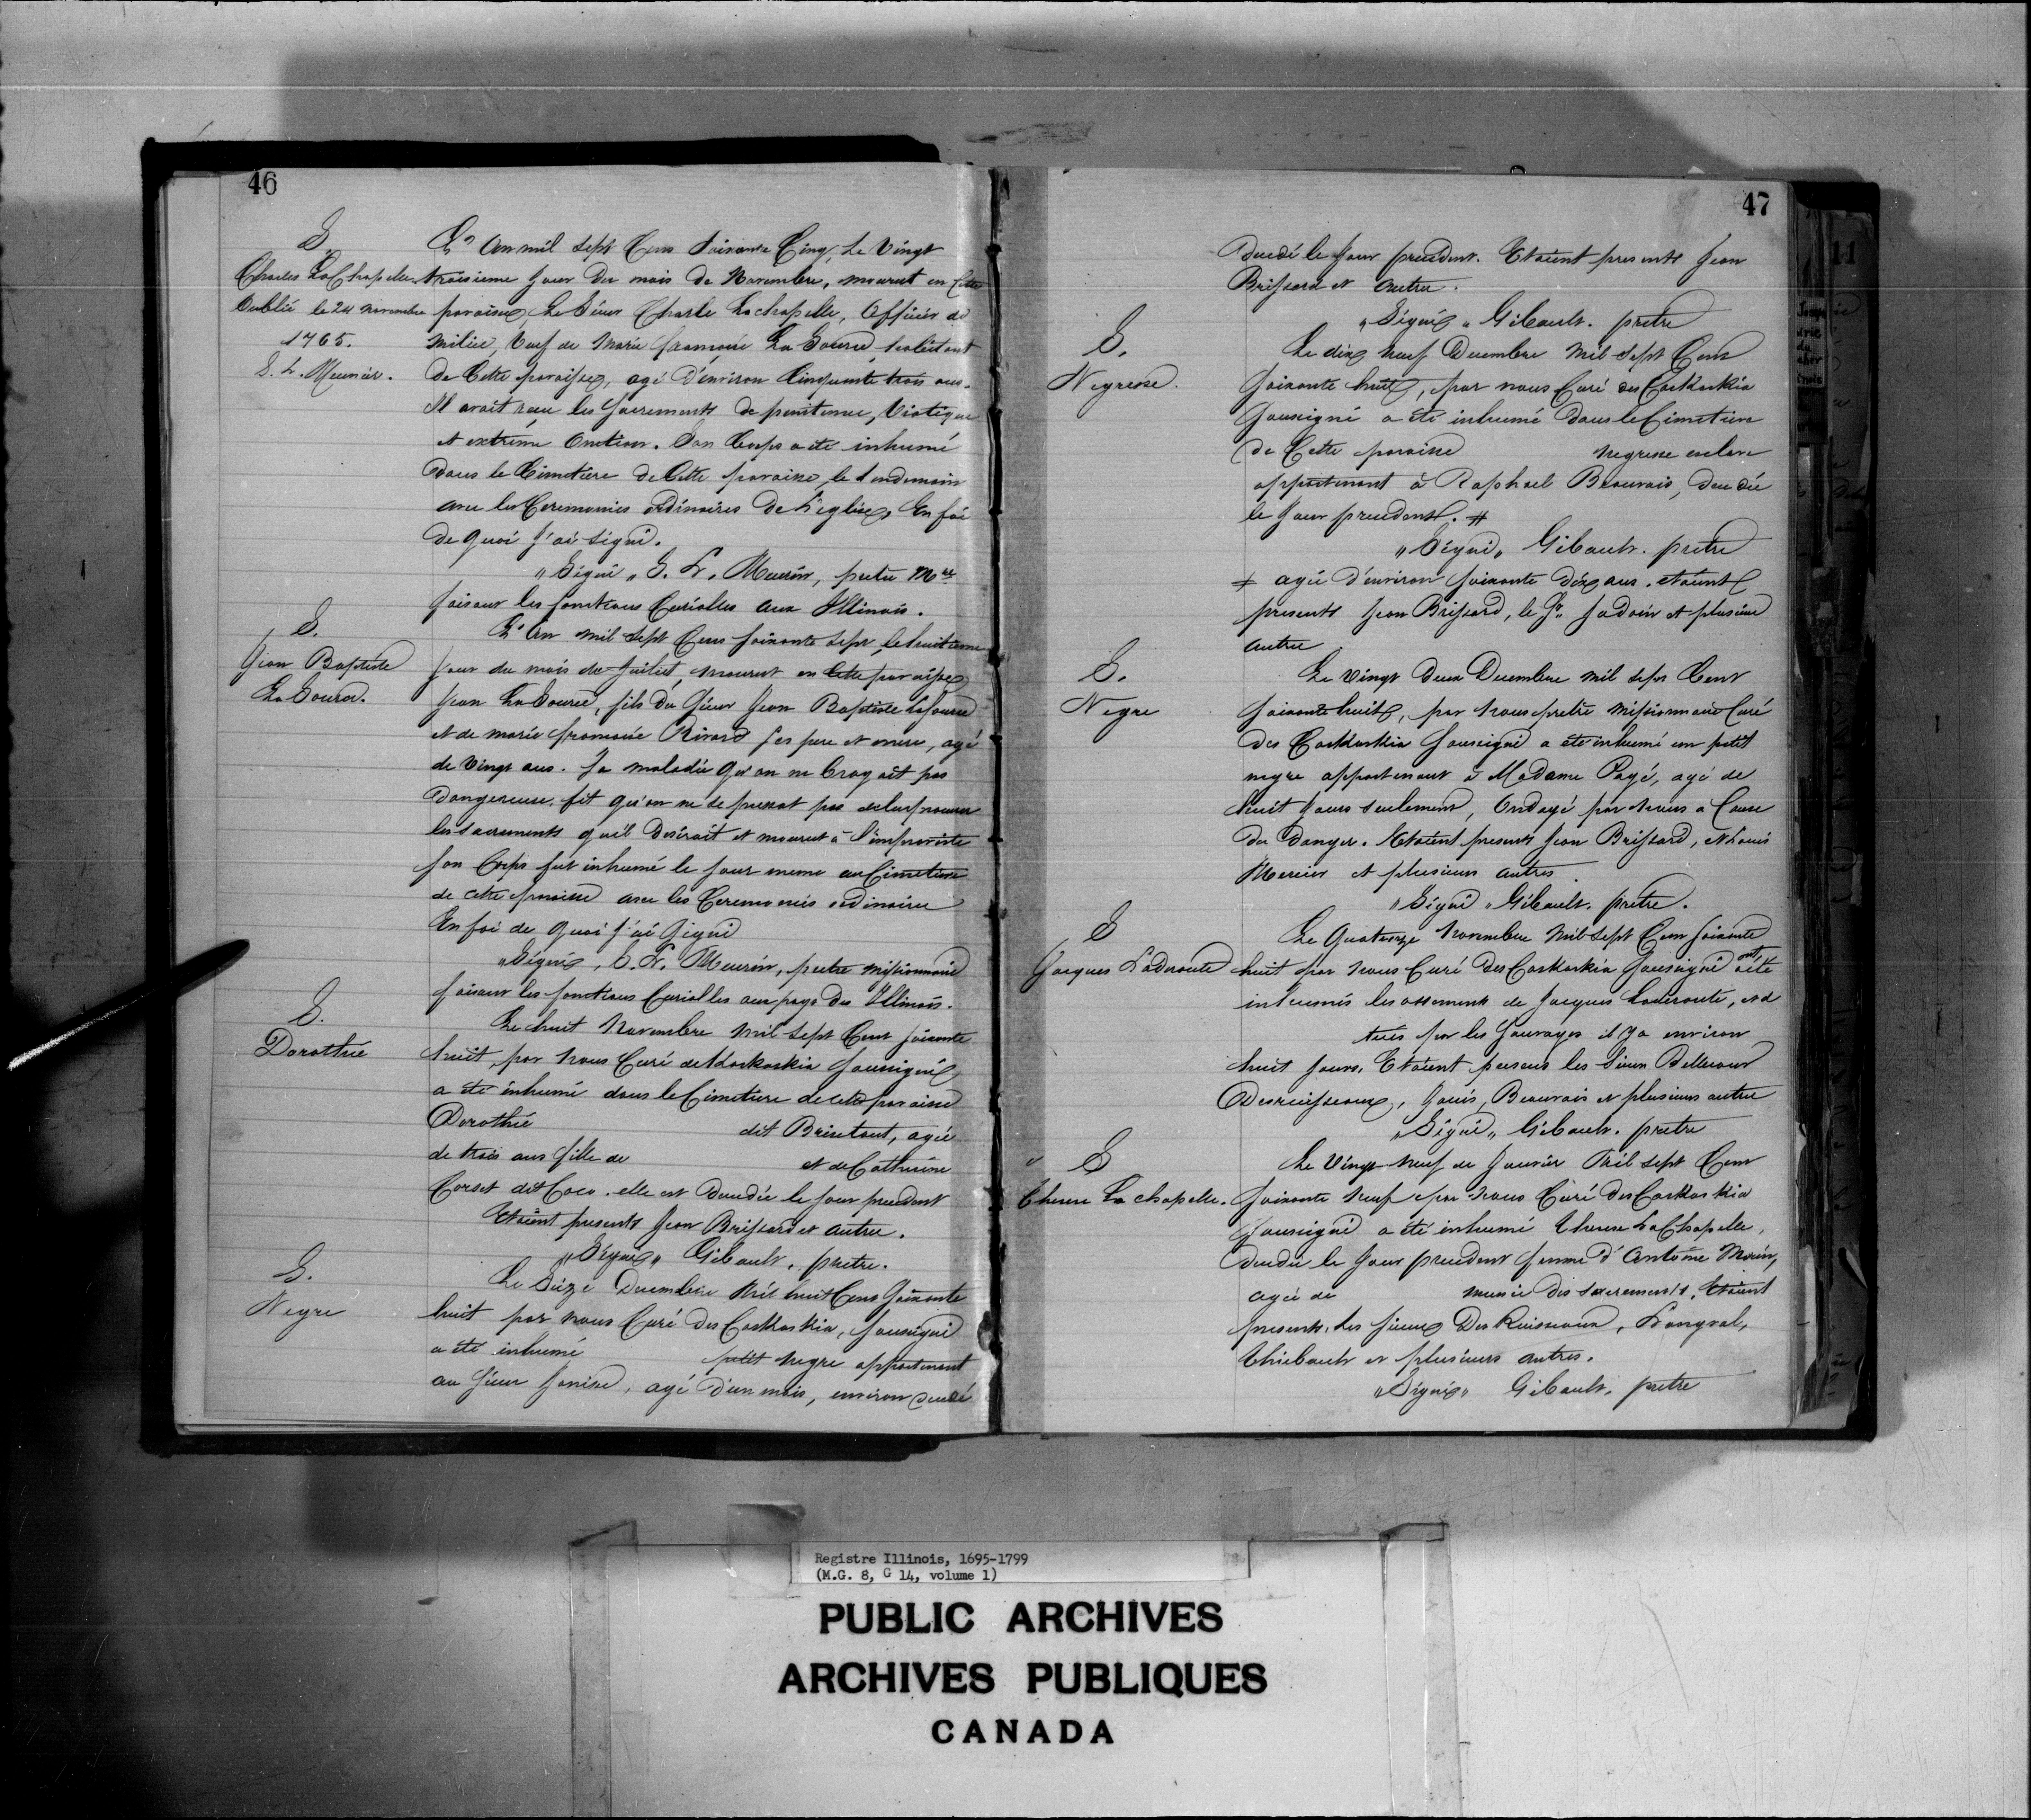 46
S.
Charles LaChapelle
Oublié le 24 novembre
1765.
S. L. Meurin.
L'An mil sept Cens Soixante Cinq, Le Vingt
troisieme Jour du mois de Novembre, mourut en Cette
paroisse, Le Sieur Charle Lachapelle, Officier de
Milice, Veuf de Marie La Source, habitant
de Cette paroisse, agé d'environ Cinquante trois ans.
Il avoit reçu les Sacrements de penitence, Viatique
et extrême Onction. Son Corps a été inhumé
dans le Cimetiere de Cette paroisse, le lendemain
avec les Ceremonies ordinaires de L'eglise, En foi
de quoi J'ai signé.
"Signé" S. L. Meurin, pretre Mre
faisant les fonctions Curialles aux Illinois.
S.
Jean Baptiste
La Source.
L'An mil Sept Cens soixante sept, le huitieme
jour du mois de Juillet, mourut en Cette paroisse
Jean La Source, fils du Sieur Jean Baptiste Lasource
et de marie Rivard ses pere et mere, agé
de Vingt ans. Sa maladie qu'on ne Croyoit pas
Dangereuse, fit qu'on ne se pressat pas
les sacrements qu'il desiroit et mourut à l'improviste
son Corps fut inhumé le jour meme au Cimetiere
de cette paroisse avec les Ceremonies ordinaires
En foi de quoi j'ai Signé
"Signé, S. L. Meurin, pretre missionnaire
faisant les fonctions Curialles aux pays des Illinois.
S.
Dorothée
Le huit Novembre Mil Sept Cent soixante
huit, par Nous Curé de Kaskaskia soussigné
a été inhumé dans le Cimetiere de cette paroisse
Dorothée dit Brisetout, agée
de trois ans fille de et de Catherine
Corset dit Coco. elle est decedée le jour precedent
Etoient presents Jean Brissard et autre.
"Signé" Gibault, pretre.
S.
Negre
Le Seize Decembre Mil huit Cens Soixante
huit par nous Curé des Caskaskia, soussigné
a été inhumé petit negre appartenant
au Sieur Janisse, agé d'un mois, environ decedé
47
Decedé le Jour precedent. Etoient presents Jean
Brissard et Autre.
"Signé" Gibault. pretre
S.
Negresse.
Le dix Neuf Decembre Mil Sept Cens
Soixante huit, par nous Curé des Caskaskia
Soussigné a été inhumé dans le Cimetiere
de Cette paroisse negresse esclave
appartenant à Raphael Beauvais, decedée
le Jour precedent. #
"Signé" Gibault. pretre
# agée d'environ soixante dix ans. etoient
presents Jean Brissard, le Sr. Jadoin et plusieurs
autre.
S.
Negre
Le Vingt deux Decembre Mil Sept Cent
Soixante huit, par Nous pretre Missionnaire Curé
des Caskaskia Soussigné a été inhumé un petit
negre appartenant à Madame Pagé, agé de
huit Jours seulement, Ondoyé par Nous a Cause
du danger. Etoient presents Jean Brissard, et Louis
Mercier et plusieurs autres.
"Signé" Gibault. pretre.
S
Jacques Laderoute
Le Quatorze Novembre Mil Sept Cens Soixante
huit par Nous Curé des Caskaskia Soussigné ont été
inhumés les ossements de Jacques Laderoute, et d
tués par les Sauvages il y a environ
huit Jours. Etoient presens les Sieurs Bellecour
Desruisseaux, Louis, Beauvais et plusieurs autre
"Signé" Gibault. pretre
S
Therese La chapelle.
Le Vingt Neuf de Janvier Mil Sept Cens
Soixante Neuf par Nous Curé des Caskaskia
Soussigné a été inhumé Therese LaChapelle,
decedée le Jour precedent femme d'Antoine Morin,
agée de munie des sacrements. Etoient
presents, les Sieurs Des Ruisseaux, Longval,
Thiebault et plusieurs autres.
"Signé" Gibault. pretre
Registre Illinois, 1695-1799
(M.G. 8, G 14, volume 1)
PUBLIC ARCHIVES
ARCHIVES PUBLIQUES
CANADA